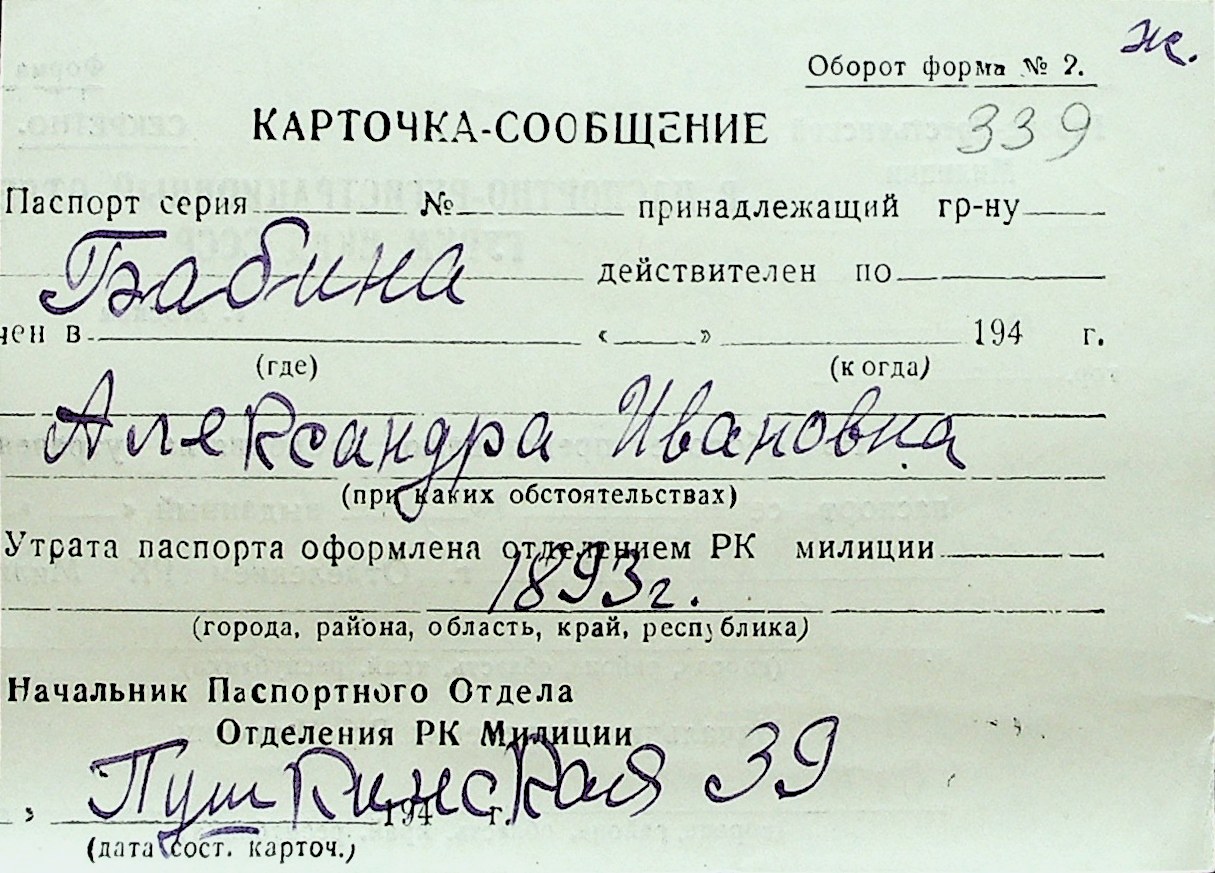 ж.
Оборот форма № 2.
КАРТОЧКА-СООБЩЕНИЕ 339
Паспорт серия № принадлежащий гр-ну
Бабина действителен по
чен в « » 194 г.
(где) (когда)
Александра Ивановна
(при каких обстоятельствах)
Утрата паспорта оформлена отделением РК милиции
1893г.
(города, района, область, край, республика)
Начальник Паспортного Отдела
Отделения РК Милиции
Пушкинская 39
» 194 г.
(дата сост. карточ.)